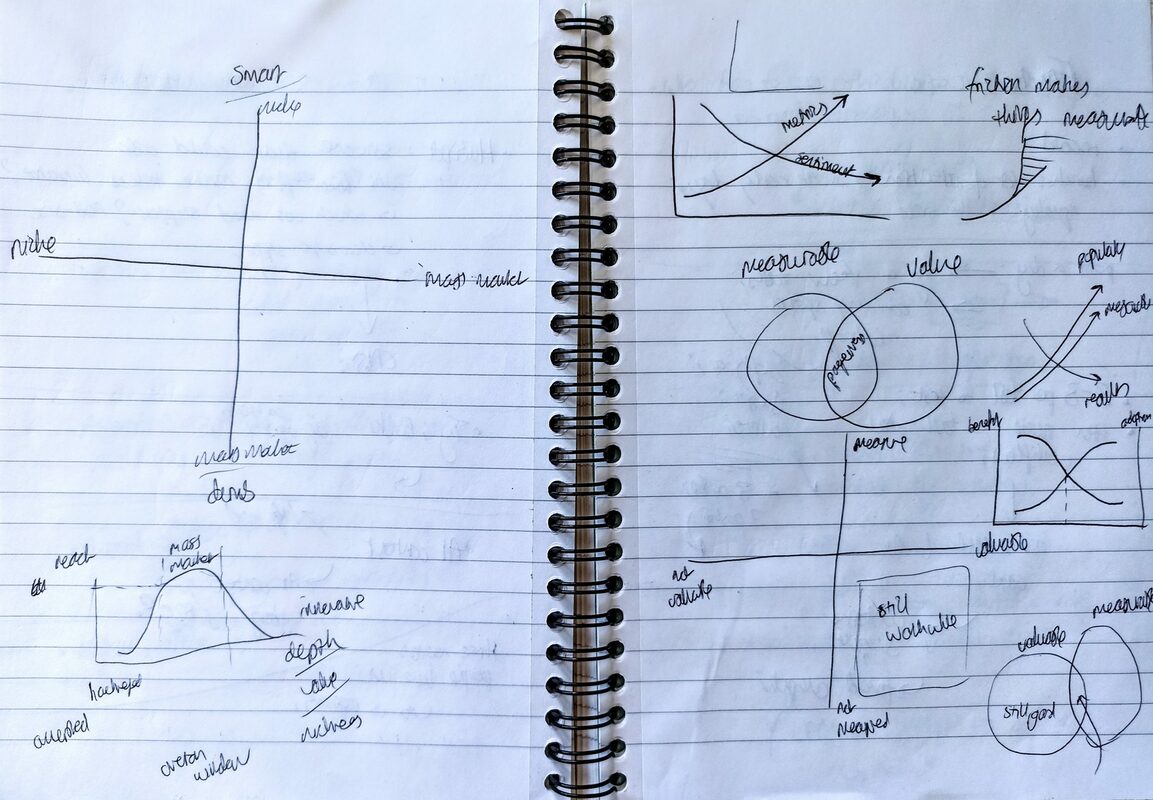 Smart
niche
niche
mass market
mass market
dumb
reach
mass
market
innovative
depth
value
nicheness
hackneyed
accepted
overton
window
metrics
sentiment
friction makes
things measurable
measurable
value
popularity
measurable
results
benefit
adoption
measure
valuable
not
valuable
still
worthwhile
not
measured
measurable
valuable
still good